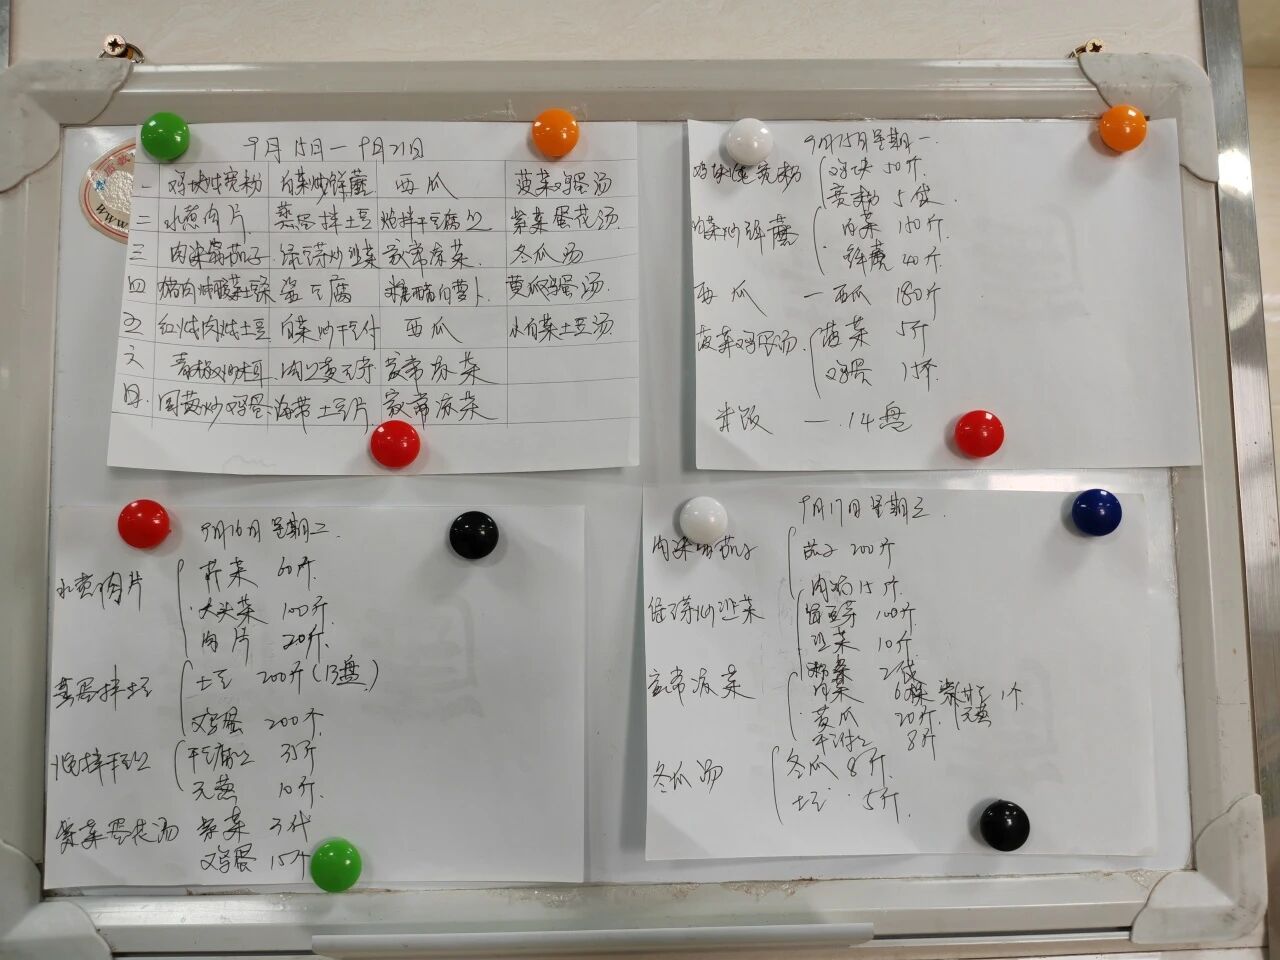 9月15日一9月21日
一 鸡块炖宽粉 白菜炒鲜蘑 西瓜 菠菜鸡蛋汤
二 水煮肉片 蒸蛋拌土豆 炝拌干豆腐丝 紫菜蛋花汤
三 肉沫烧茄子 绿豆芽炒韭菜 家常凉菜 冬瓜汤
四 猪肉炖酸菜土豆 豆腐 糖醋白萝卜 黄瓜鸡蛋汤
五 红烧肉炖土豆 白菜炒干豆付 西瓜 小白菜土豆汤
六 青椒炒木耳 家常凉菜
日 鸡蛋 海带土豆片 家常凉菜
9月15日星期一
鸡块炖宽粉 鸡块 50斤
宽粉 5袋
白菜炒鲜蘑 白菜 180斤
鲜蘑 40斤
西瓜 一 西瓜 180斤
菠菜鸡蛋汤 菠菜 5斤
鸡蛋 15个
米饭 一 14盘
9月16日星期二
水煮肉片 芹菜 60斤
大头菜 100斤
肉片 20斤
蒸蛋拌土豆 土豆 200斤(13盘)
鸡蛋 200个
炝拌干豆丝 干豆腐丝 35斤
元葱 10斤
紫菜蛋花汤 紫菜 3代
鸡蛋 15个
9月17日星期三
肉沫烧茄子 茄子 200斤
肉沫 15斤
绿豆芽炒韭菜 绿豆芽 100斤
韭菜 10斤
家常凉菜 2袋
白菜 6棵 1个
黄瓜 20斤 元葱
干豆付丝 8斤
冬瓜汤 冬瓜 8斤
土豆 5斤